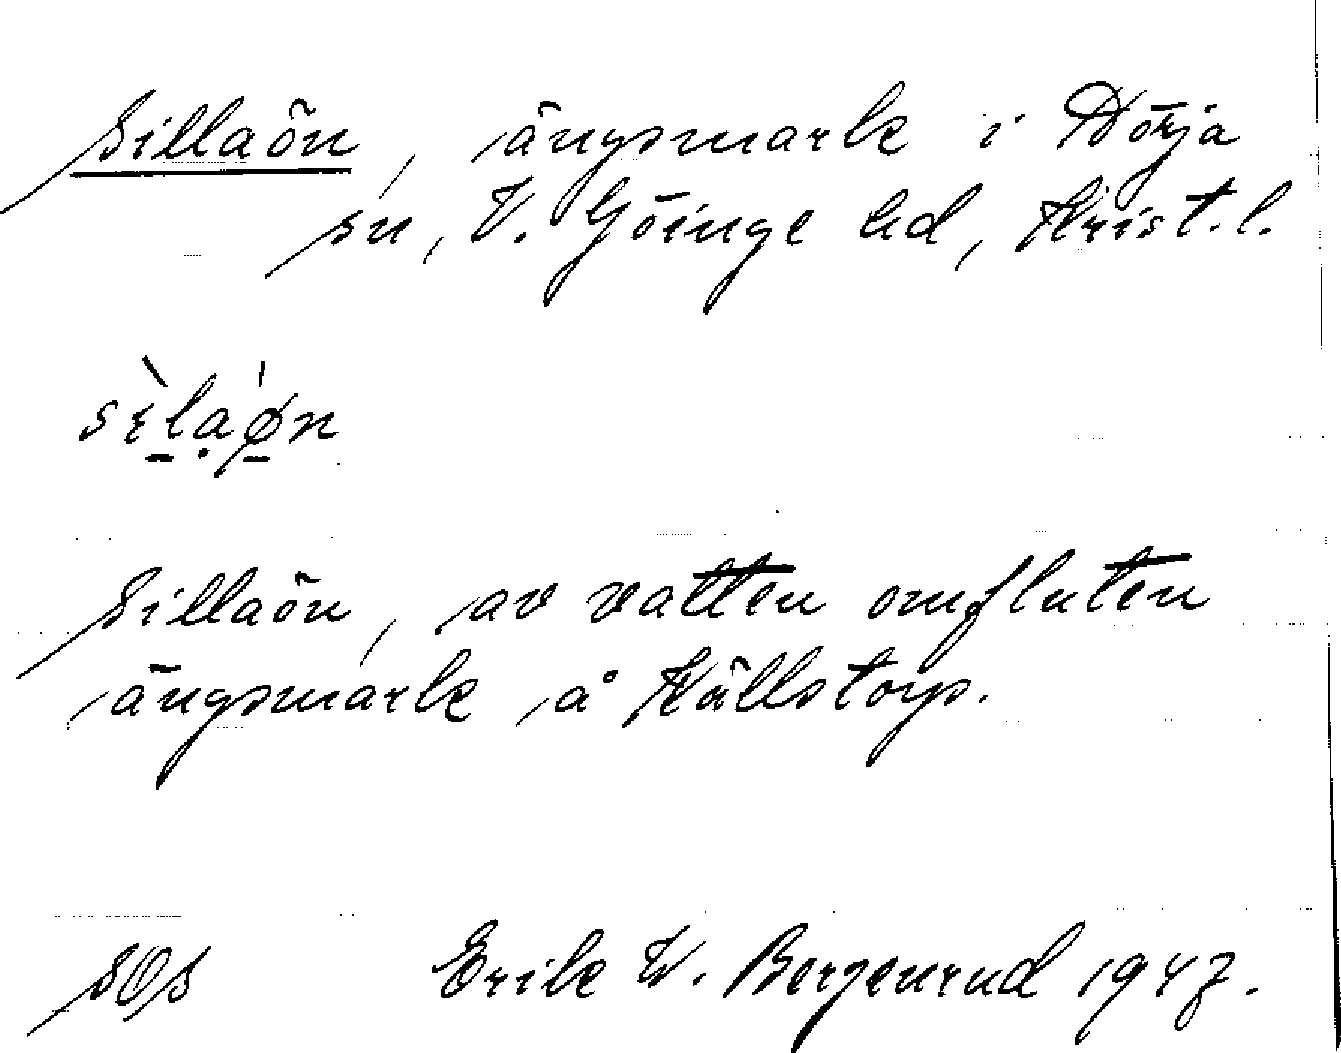 Sillaön, ängsmark i Nörja
sn, V. Göinge hd, Krist. l.
sìlaǿn
Sillaön, av vatten omfluten
ängsmark å Källstorp.
SOS Erik W. Bergenrud 1947.